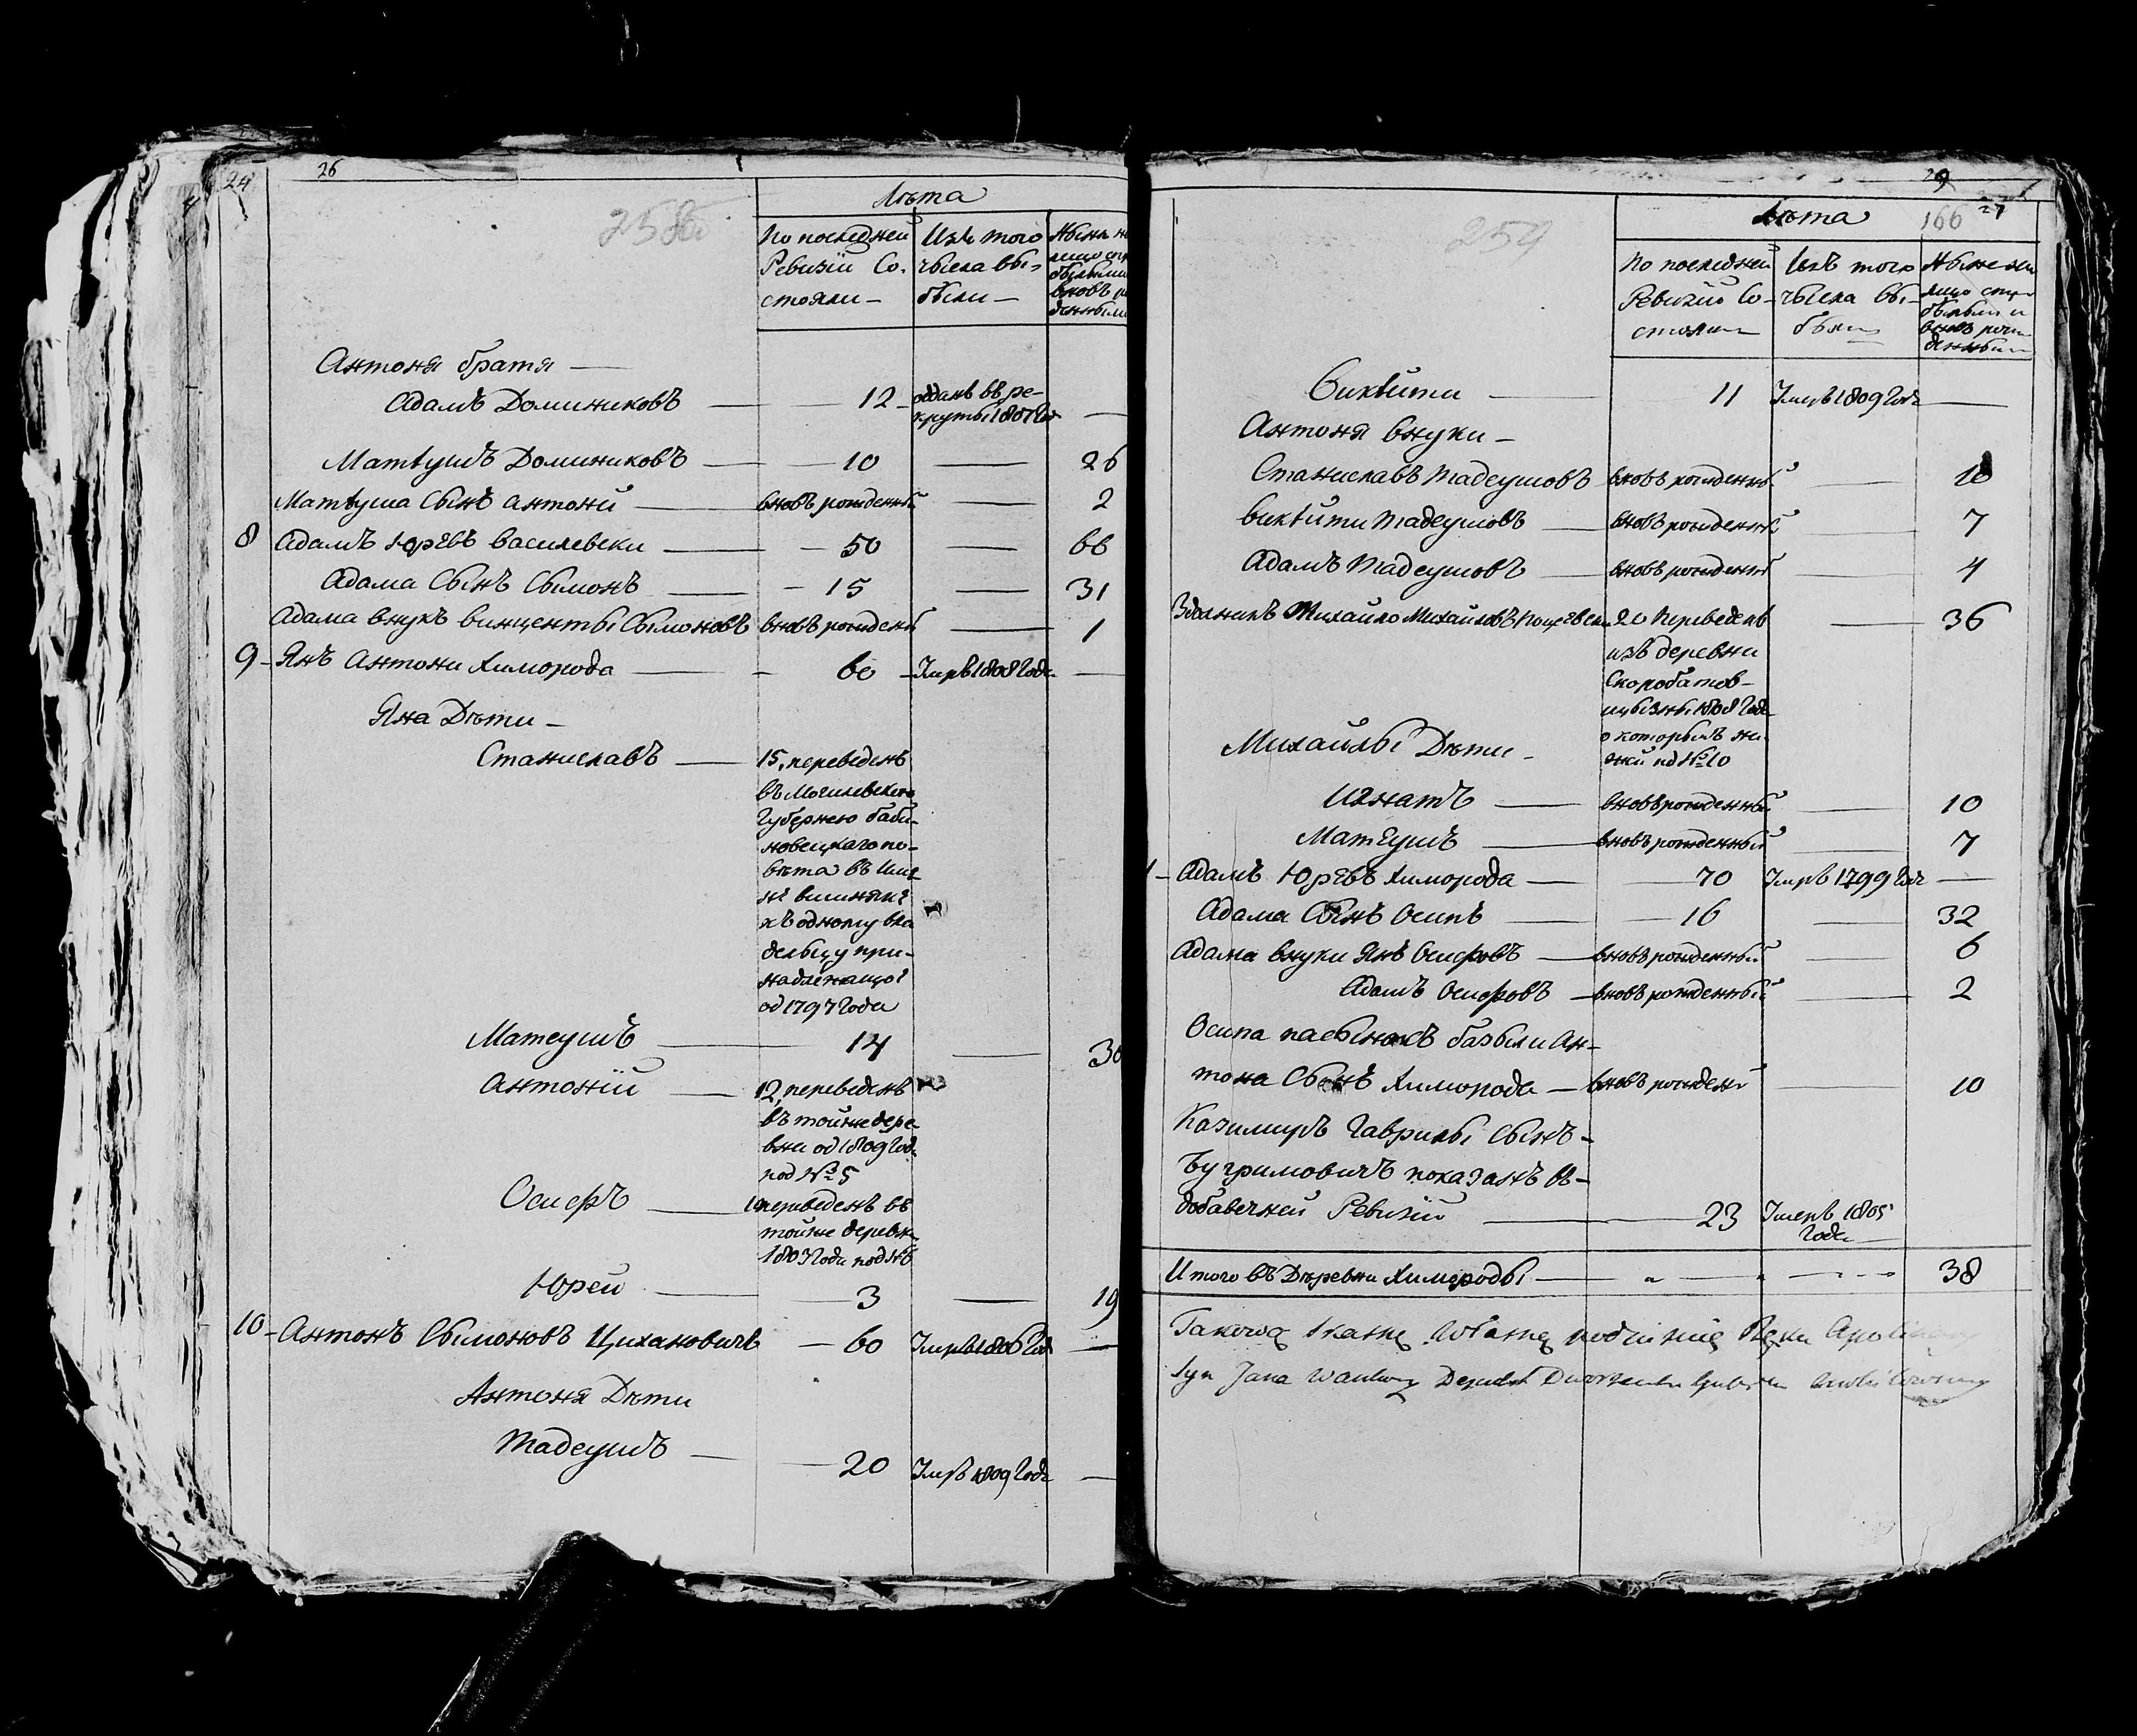 24
26
258об
Лѣта
По последней
Ревизіи Со-
стояли —
Изъ того
числа вы-
были —
Нынѣ
вновъ
Антоня братя —
Адамъ Доминиковъ — 12 — отданъ въ ре-
круты 1807 —
Матеушъ Доминиковъ — 10 — 26
Матеуша Сынъ Антони — вновъ рожденный — 2
8 Адамъ Юрѣвъ Василевски — 50 — 66
Адама Сынъ Сымонъ — 15 — 31
Адама внукъ винценты Сымоновъ вновъ рожденый — 1
9 — Янъ Антони Химорода — 60 — Умръ 1808 Года —
Яна Дѣти —
Станиславъ — 15, переведенъ
въ Могилевскою
Губернею баби-
новецкаго по-
вѣта въ
къ одному вла
дельцу при-
надлежащой
од 1797 Года
Матеушъ — 14 — 30
Антоній — 12, переведенъ
въ тойже дере-
вни од 1809 Года
под № 5
Осифъ — переведенъ въ
тойже деревни
1803 Года под №
Юрей — 3 — 19
10 — Антонъ Сымоновъ Цихановичъ — 60 Умръ 1806 Года —
Антоня Дѣти
Тадеушъ — 20 Умръ 1809 Года —
29
27
166
259
Лѣта
По последней
Ревизіи Со-
стояли
Изъ того
числа вы-
были
Ныне на
лицо съ при
былыми и
вновъ рож
денными
Викѣнти — 11 Умръ 1809 Года —
Антоня внуки —
Станиславъ Тадеушовъ вновъ рожденный — 10
Викѣнти Тадеушовъ — вновъ рожденный — 7
Адамъ Тадеушовъ — вновъ рожденный — 4
Михайло Михайловъ 20 Переведенъ — 36
изъ деревни
Скоробатов-
щызны 1808 Года
о которымъ ни-
жей под № 10
Михайлы Дѣти —
Игнатъ — вновърожденный — 10
Матеушъ — вновърожденный — 7
— Адамъ Юрѣвъ Химорода — 70 Умръ 1799 Года —
Адама Сынъ Осипъ — 16 — 32
Адама внуки Янъ Осифовъ — вновърожденный — 6
Адамъ Осифовъ — вновърожденный — 2
Осипа пасынокъ базыли Ан-
тона Сынъ Химорода — вновъ рождены — 10
Казимиръ Гаврилы Сынъ —
Бугримовичъ показанъ в —
добавечней Ревизіи — 23 Умеръ 1805
Года —
Итого въ Дѣревни Химороды — 38
Takową Skaskę własną podpisuię Ręku
Syn Jana Deputat